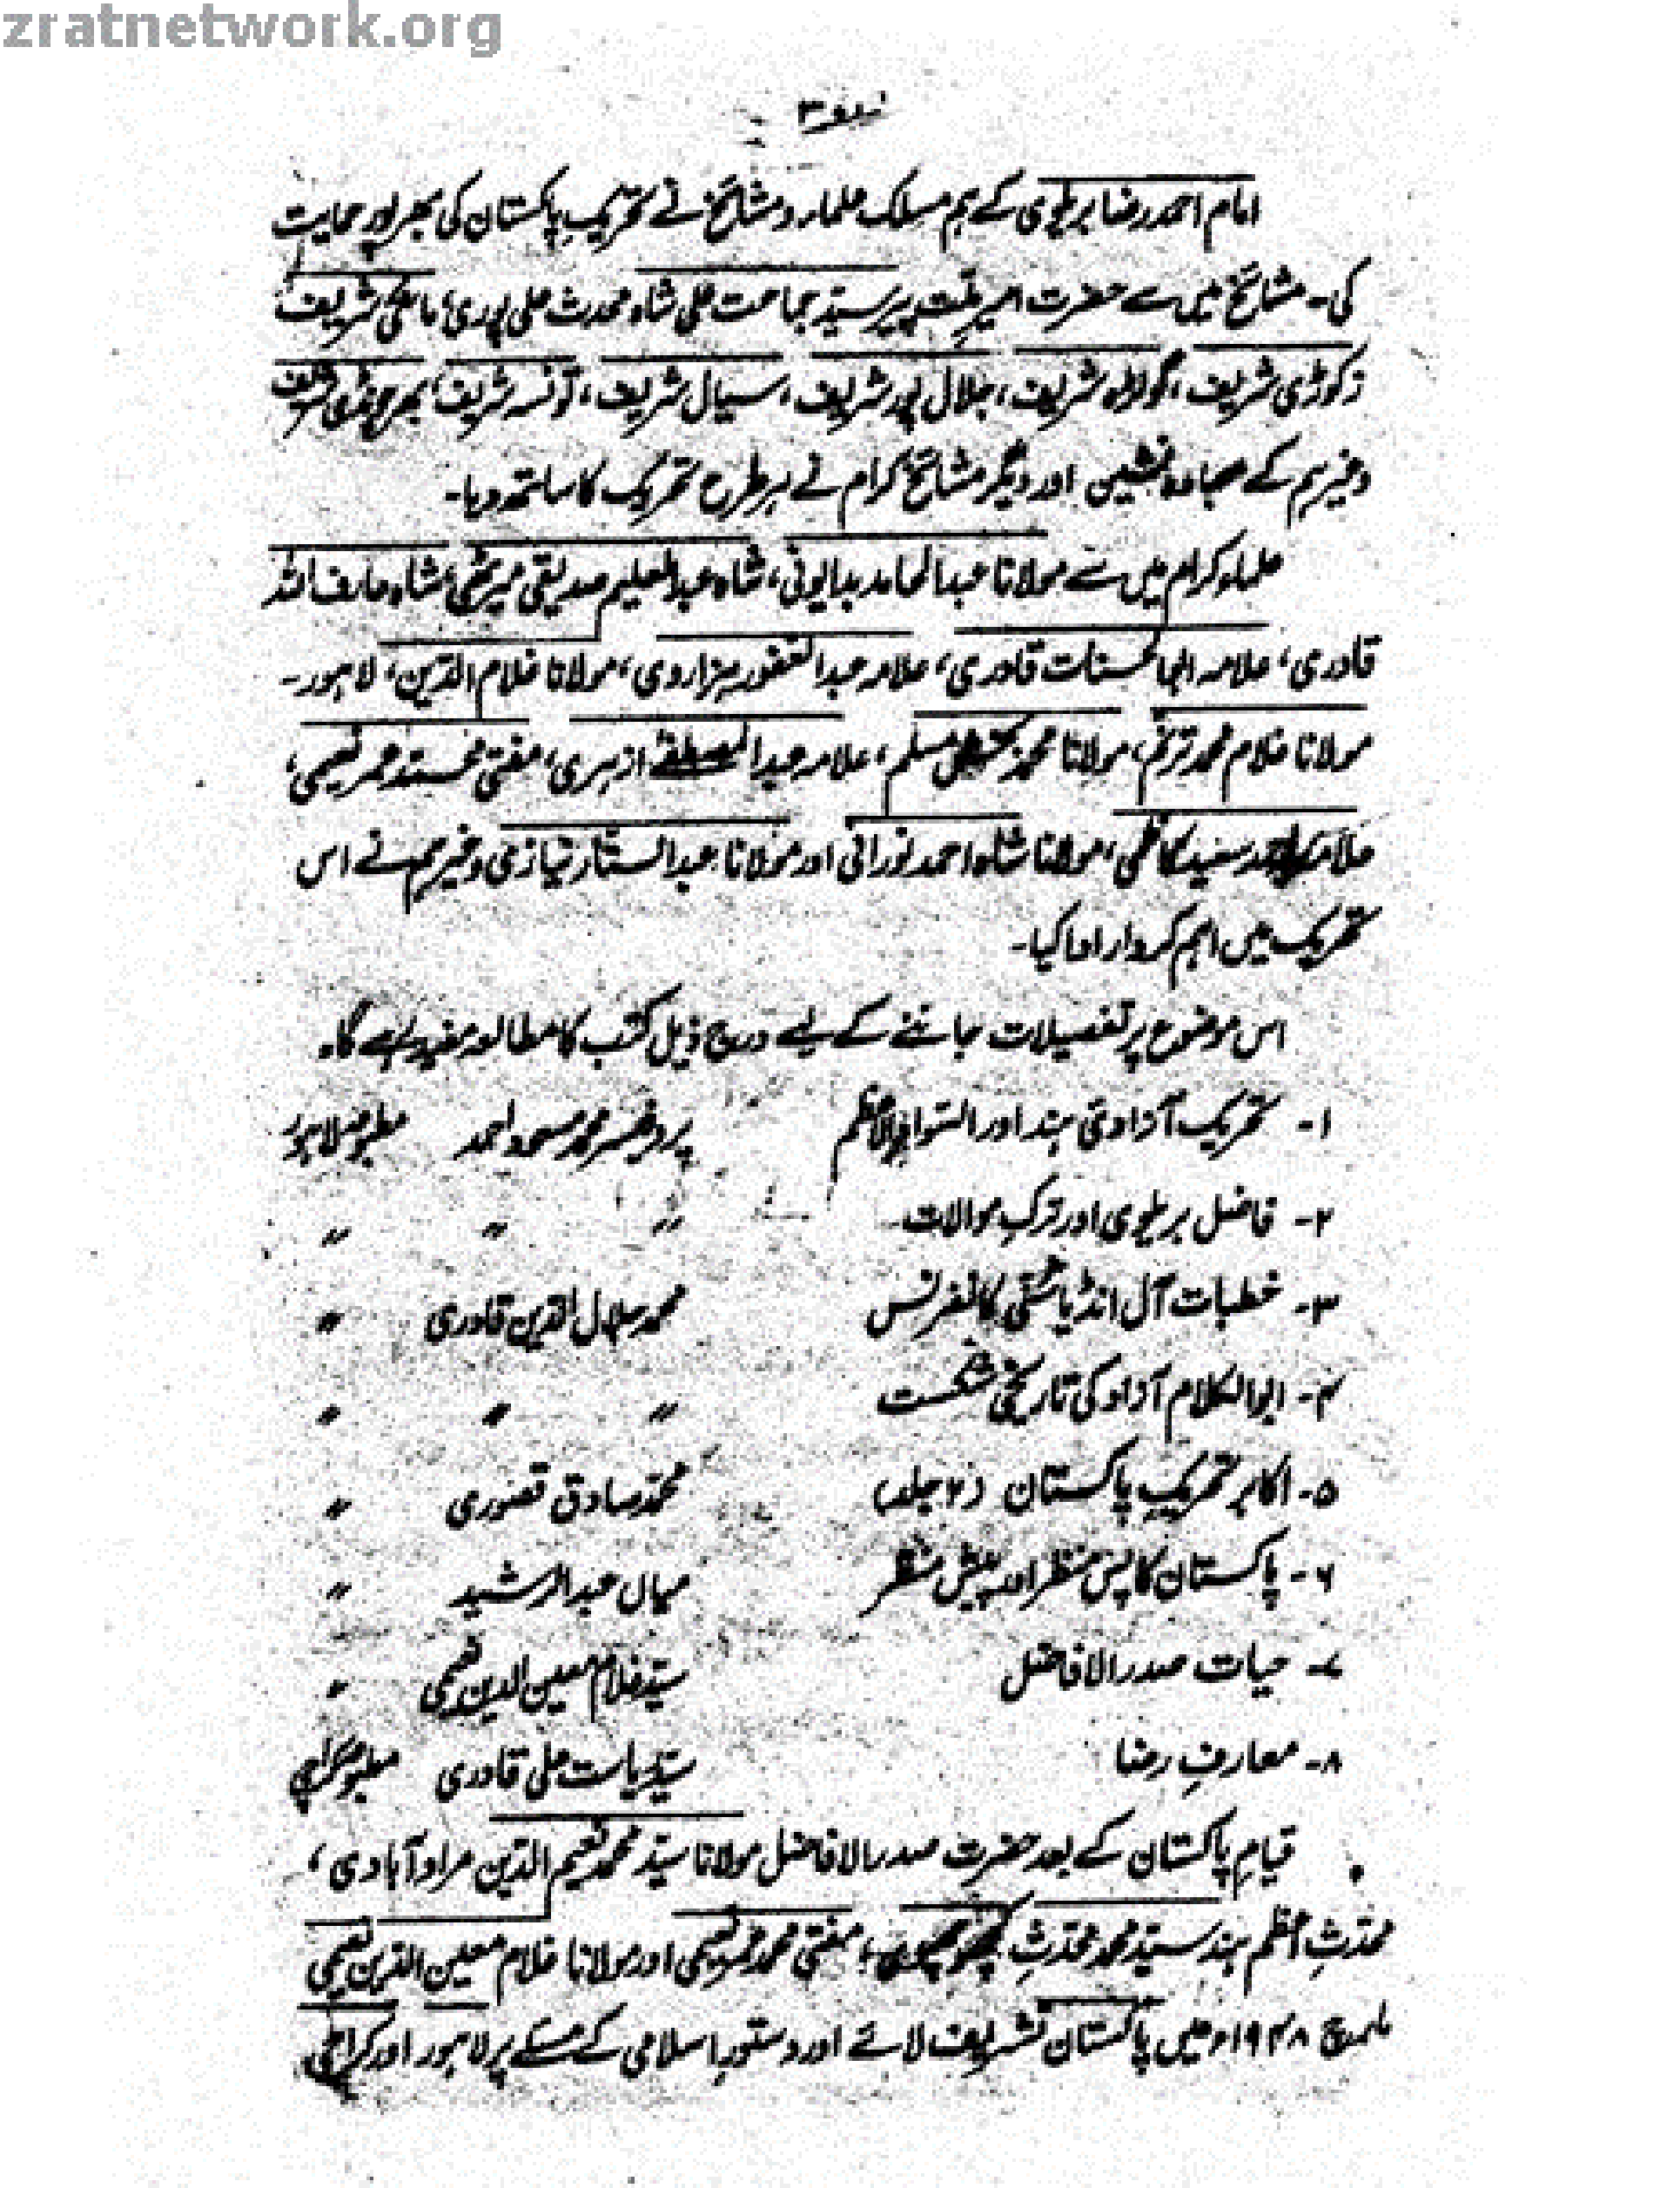 zratnetwork.org
امام احمد رضا بریلوی کے ہم مسلک علماء و مشائخ نے تحریکِ پاکستان کی بھرپور حمایت
کی۔ مشائخ میں سے حضرت امیر ملّت پیر سیّد جماعت علی شاہ محدث علی پوری، مانکی شریف
زکوڑی شریف، گولڑہ شریف، جلال پور شریف، سیال شریف، تونسہ شریف، بھرچونڈی شریف
وغیرہم کے سجادہ نشین اور دیگر مشائخ کرام نے ہر طرح تحریک کا ساتھ دیا۔
علماء کرام میں سے مولانا عبدالحامد بدایونی، شاہ عبدالعلیم صدیقی میرٹھی، شاہ عارف اللہ
قادری، علامہ ابوالحسنات قادری، علامہ عبدالغفور ہزاروی، مولانا غلام الدین، لاہور۔
مولانا غلام محمد ترنم، مولانا محمد بخش مسلم، علامہ عبدالمصطفےٰ ازہری، مفتی محمد عمر نعیمی،
علامہ احمد سعید کاظمی، مولانا شاہ احمد نورانی اور مولانا عبدالستار نیازی وغیرہم نے اس
تحریک میں اہم کردار ادا کیا۔
اس موضوع پر تفصیلات جاننے کے لیے درج ذیل کتب کا مطالعہ مفید رہے گا۔
۱۔ تحریک آزادیِ ہند اور السواد الاعظم پروفیسر محمد مسعود احمد مطبوعہ لاہور
۲۔ فاضل بریلوی اور ترکِ موالات ” ” ”
۳۔ خطبات آل انڈیا سُنّی کانفرنس محمد جلال الدین قادری ”
۴۔ ابوالکلام آزاد کی تاریخی شکست ” ” ”
۵۔ اکابر تحریکِ پاکستان (۲ جلد) محمد صادق قصوری ”
۶۔ پاکستان کا پس منظر اور پیش منظر میاں عبدالرشید ”
۷۔ حیات صدر الافاضل سیّد غلام معین الدین نعیمی ”
۸۔ معارفِ رضا سیّد ریاست علی قادری مطبوعہ کراچی
قیامِ پاکستان کے بعد حضرت صدر الافاضل مولانا سیّد محمد نعیم الدین مراد آبادی،
محدّثِ اعظم ہند سیّد محمد محدّثِ کچھوچھوی، مفتی محمد عمر نعیمی اور مولانا غلام معین الدین نعیمی
مارچ ۱۹۴۸ء میں پاکستان تشریف لائے اور دستورِ اسلامی کے مسئلے پر لاہور اور کراچی